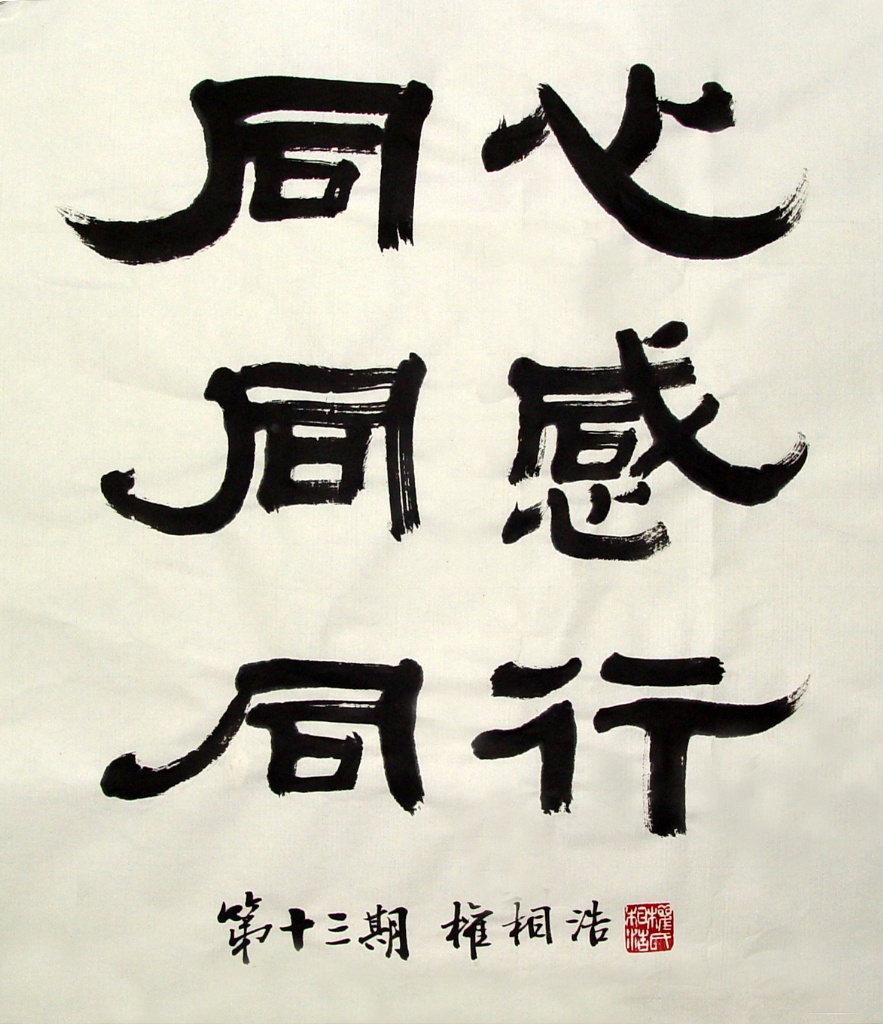 同心
同感
同行
第十三期 權相浩
權氏相浩